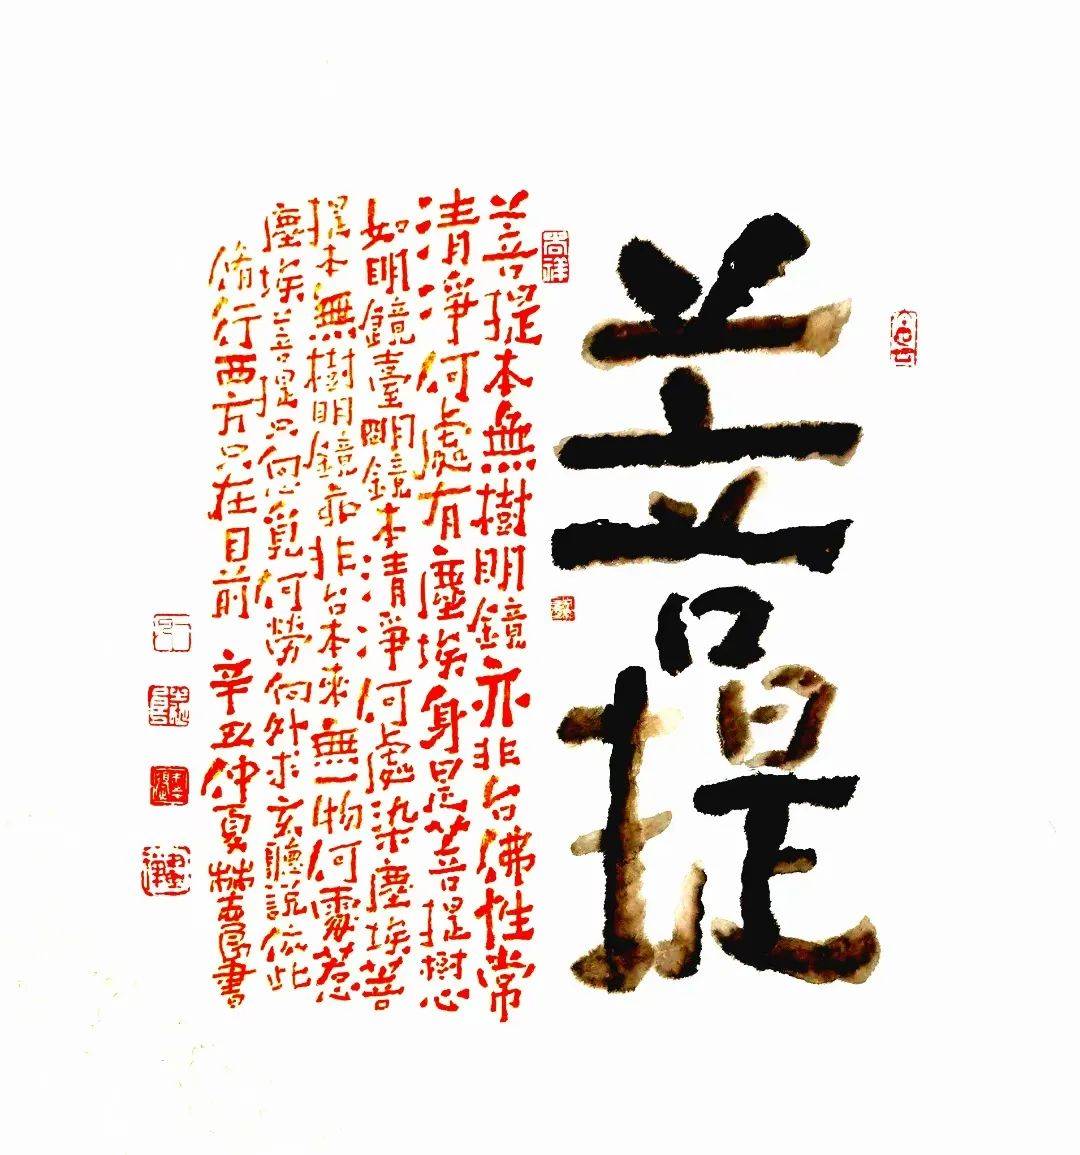 菩提
菩提本無樹明鏡亦非台佛性常
清淨何處有塵埃身是菩提樹心
如明鏡臺明鏡本清淨何處染塵埃菩
提本無樹明鏡亦非台本來無一物何處惹
塵埃菩提只向心覓何勞向外求玄聽說依此
脩行西方只在目前 辛丑仲夏林書